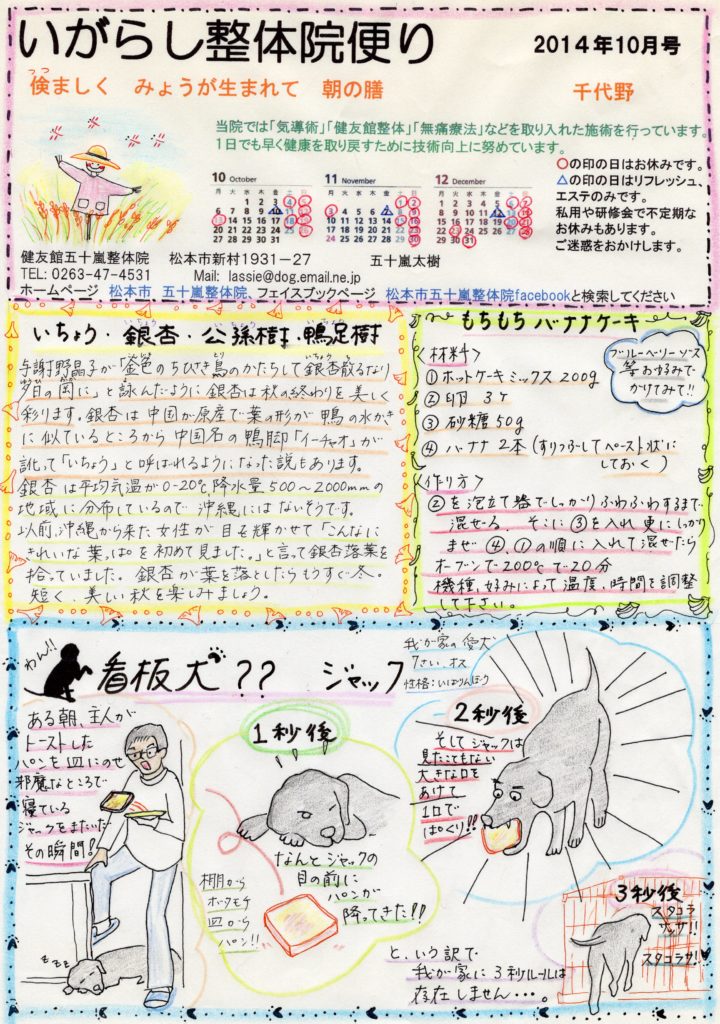 いがらし整体院便り
2014年10月号
倹ましく　みょうが生まれて　朝の膳
つつ
千代野
当院では「気導術」「健友館整体」「無痛療法」などを取り入れた施術を行っています。
1日でも早く健康を取り戻すために技術向上に努めています。
10 October
11 November
12 December
○の印の日はお休みです。
△の印の日はリフレッシュ、
エステのみです。
私用や研修会で不定期な
お休みもあります。
ご迷惑をおかけします。
健友館五十嵐整体院　松本市新村1931－27　五十嵐太樹
TEL: 0263-47-4531　Mail: lassie@dog.email.ne.jp
ホームページ　松本市　五十嵐整体院、フェイスブックページ　松本市五十嵐整体院facebookと検索してください
いちょう・銀杏・公孫樹・鴨足樹
与謝野晶子が「金色のちひさき鳥のかたちして銀杏散るなり
夕日の岡に」と詠んだように銀杏は秋の終わりを美しく
彩ります。銀杏は中国が原産で葉の形が鴨の水かき
に似ているところから中国名の鴨脚「イーチャオ」が
訛って「いちょう」と呼ばれるようになった説もあります。
銀杏は平均気温が0-20℃,降水量500～2000mmの
地域に分布しているので沖縄にはないそうです。
以前,沖縄から来た女性が目を輝かせて「こんなに
きれいな葉っぱを初めて見ました。」と言って銀杏落葉を
拾っていました。銀杏が葉を落としたらもうすぐ冬。
短く、美しい秋を楽しみましょう。
もちもちバナナケーキ
ブルーベリーソース
等お好みで
かけてみて!!
<材料>
①ホットケーキミックス200g
②卵　3ケ
③砂糖50g
④バナナ2本(すりつぶしてペースト状に
しておく)
<作り方>
②を泡立て器でしっかりふわふわするまで
混ぜる。そこに③を入れ更にしっかり
まぜ④、①の順に入れて混ぜたら
オーブンで200℃で20分
機種、好みによって温度、時間を調整
して下さい。
わん!!
看板犬??　ジャック
我が家の愛犬
7さい、オス
性格:いばりんぼう
ある朝、主人が
トーストした
パンを皿にのせ
邪魔なところで
寝ている
ジャックをまたいだ
その瞬間!
zzz
1秒後
なんとジャックの
目の前に
パンが
降ってきた!!
棚から
ボタモチ
皿から
パン!!
2秒後
そしてジャックは
見たこともない
大きな口を
あけて
1口で
ぱくり!!
3秒後
スタコラ
サッサ!!
スタコラサ!
と、いう訳で
我が家に3秒ルールは
存在しません・・・。